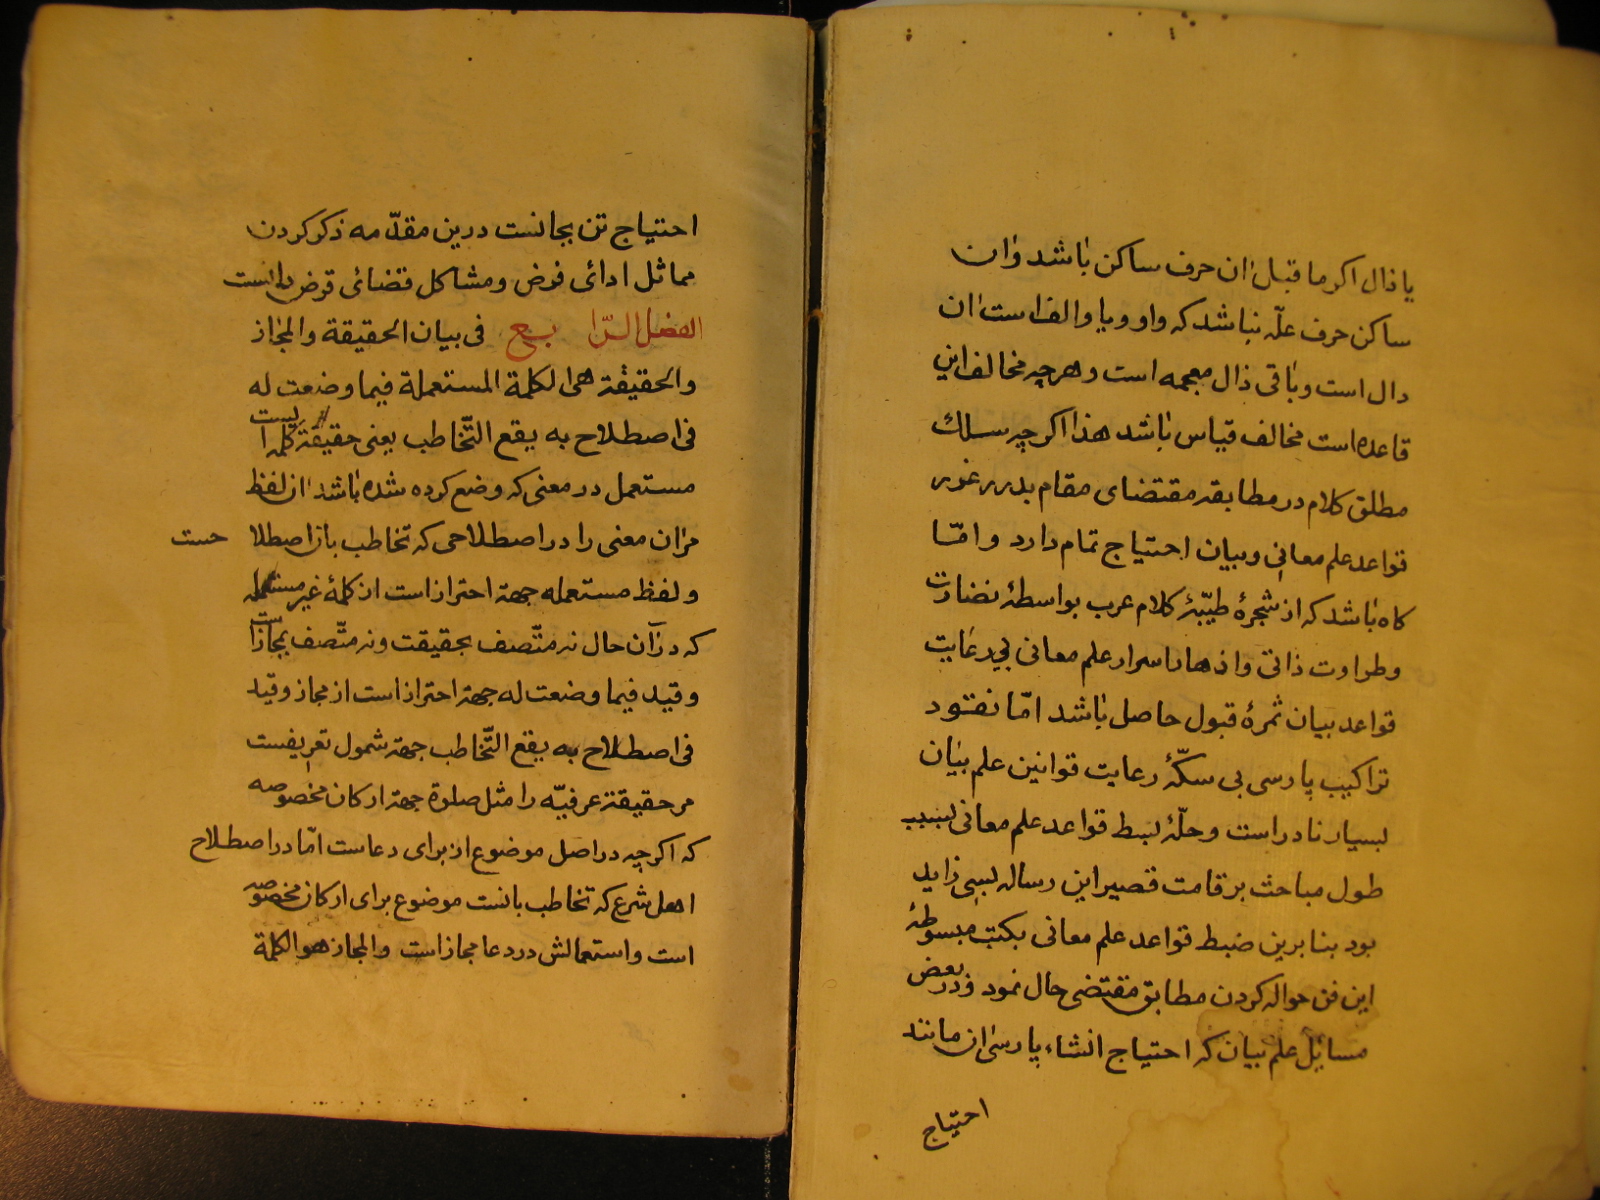 یا ذال اکر ما قبل ان حرف ساکن باشد وان
ساکن حرف علّه نباشد که واو ویا والف است ان
دال است و باقی ذال معجمه است و هرچه مخالف این
قاعده است مخالف قیاس باشد هذا اکرچه سلك
مطلق کلام در مطابقه مقتضای مقام بدرر غرر
قواعد علم معانی وبیان احتیاج تمام دارد و امّا
کاه باشد که از شجرهٔ طیّبهٔ کلام عرب بواسطهٔ نضارت
وطراوت ذاتی و ازهار اسرار علم معانی بی رعایت
قواعد بیان ثمرهٔ قبول حاصل باشد امّا نقود
تراکیب پارسی بی سکّهٔ رعایت قوانین علم بیان
بسیار نادر است و حلّهٔ بسط قواعد علم معانی بسبب
طول مباحث بر قامت قصیر این رساله بسی زاید
بود بنا برین ضبط قواعد علم معانی بکتب مبسوطهٔ
این فن حواله کردن مطابق مقتضی حال نمود و در بعض
مسایل علم بیان که احتیاج انشاء پارسی ان مانند
احتیاج
احتیاج تن بجانست درین مقدّمه ذکر کردن
مماثل ادائی فرض و مشاکل قضائی قرض دانست
الفصل الرّابع فی بیان الحقیقة والمجاز
والحقیقة هی الکلمة المستعملة فیما وضعت له
فی اصطلاح به یقع التّخاطب یعنی حقیقة کلمه ایست
مستعمل در معنی که وضع کرده شده باشد ان لفظ
مران معنی را در اصطلاحی که تخاطب بان اصطلا حست
و لفظ مستعمله جهة احتراز است از کلمهٔ غیر مستعمله
که در آن حال نه متّصف بحقیقت ونه متّصف بمجازاست
وقید فیما وضعت له جهة احتراز است از مجاز وقید
فی اصطلاح به یقع التّخاطب جهة شمول تعریفست
مر حقیقة عرفیّه را مثل صلوة جهة ارکان مخصوصه
که اکرچه در اصل موضوع از برای دعاست امّا در اصطلاح
اهل شرع که تخاطب بانست موضوع برای ارکان مخصوصه
است و استعمالش در دعا مجاز است والمجاز هو الکلمة